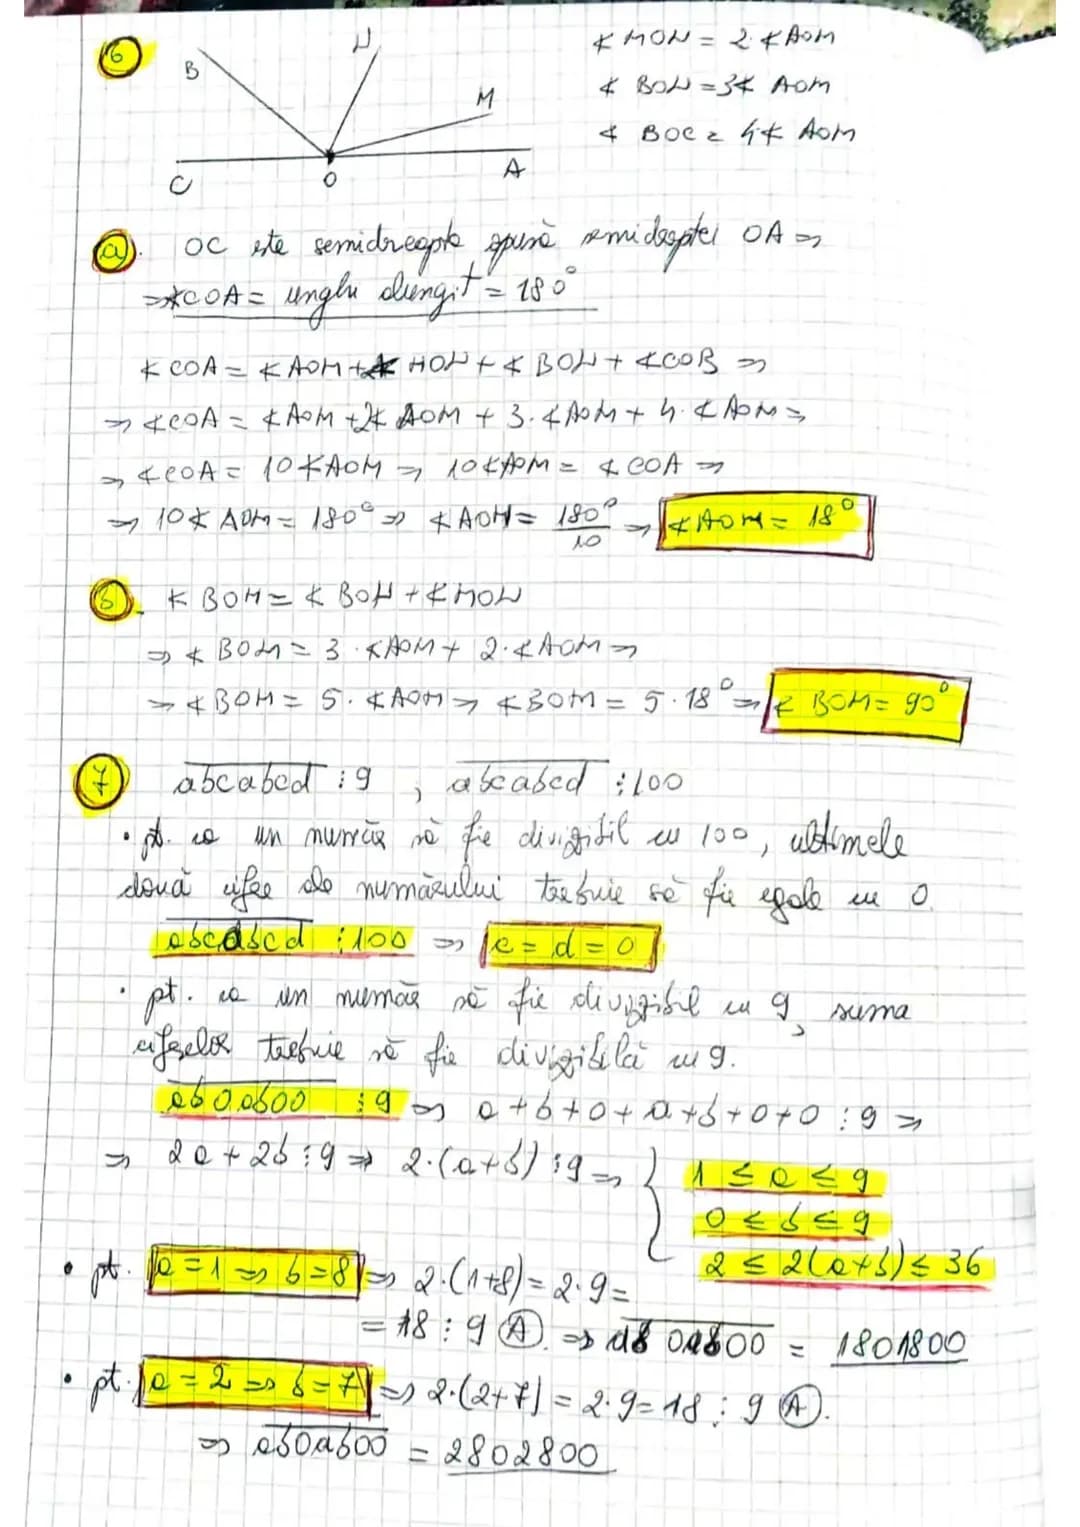 6
B
N
M
C
O
A
∢ MON = 2·∢AOM
∢ BON = 3∢ AOM
∢ BOC = 4∢ AOM
a). OC este semidreapta opusă semidreptei OA ⇒
⇒ ∢COA = unghi alungit = 180°
∢ COA = ∢ AOM + ∢ MON + ∢ BON + ∢COB ⇒
⇒ ∢COA = ∢AOM + 2∢ AOM + 3·∢AOM + 4·∢AOM ⇒
⇒ ∢COA = 10∢AOM ⇒ 10∢AOM = ∢COA ⇒
⇒ 10∢AOM = 180° ⇒ ∢AOM = 180°/10 ⇒ ∢AOM = 18°
b). ∢ BOM = ∢ BON + ∢MON
⇒ ∢ BOM = 3·∢AOM + 2·∢AOM ⇒
⇒ ∢BOM = 5·∢AOM ⇒ ∢BOM = 5·18° ⇒ ∢ BOM = 90°
7 abcabcd ⋮ 9 , abcabcd ⋮ 100
• pt. ca un număr să fie divizibil cu 100, ultimele
două cifre ale numărului trebuie să fie egale cu 0.
abcabcd ⋮ 100 ⇒ c = d = 0
• pt. ca un număr să fie divizibil cu 9, suma
cifrelor trebuie să fie divizibilă cu 9.
ab0ab00 ⋮ 9 ⇒ a+b+0+a+b+0+0 ⋮ 9 ⇒
⇒ 2a + 2b ⋮ 9 ⇒ 2·(a+b) ⋮ 9 ⇒ { 1 ≤ a ≤ 9
0 ≤ b ≤ 9
2 ≤ 2(a+b) ≤ 36
• pt. a = 1 ⇒ b = 8 ⇒ 2·(1+8) = 2·9 =
= 18 ⋮ 9 (A). ⇒ ab0ab00 = 1801800
• pt. a = 2 ⇒ b = 7 ⇒ 2·(2+7) = 2·9 = 18 ⋮ 9 (A).
⇒ ab0ab00 = 2802800